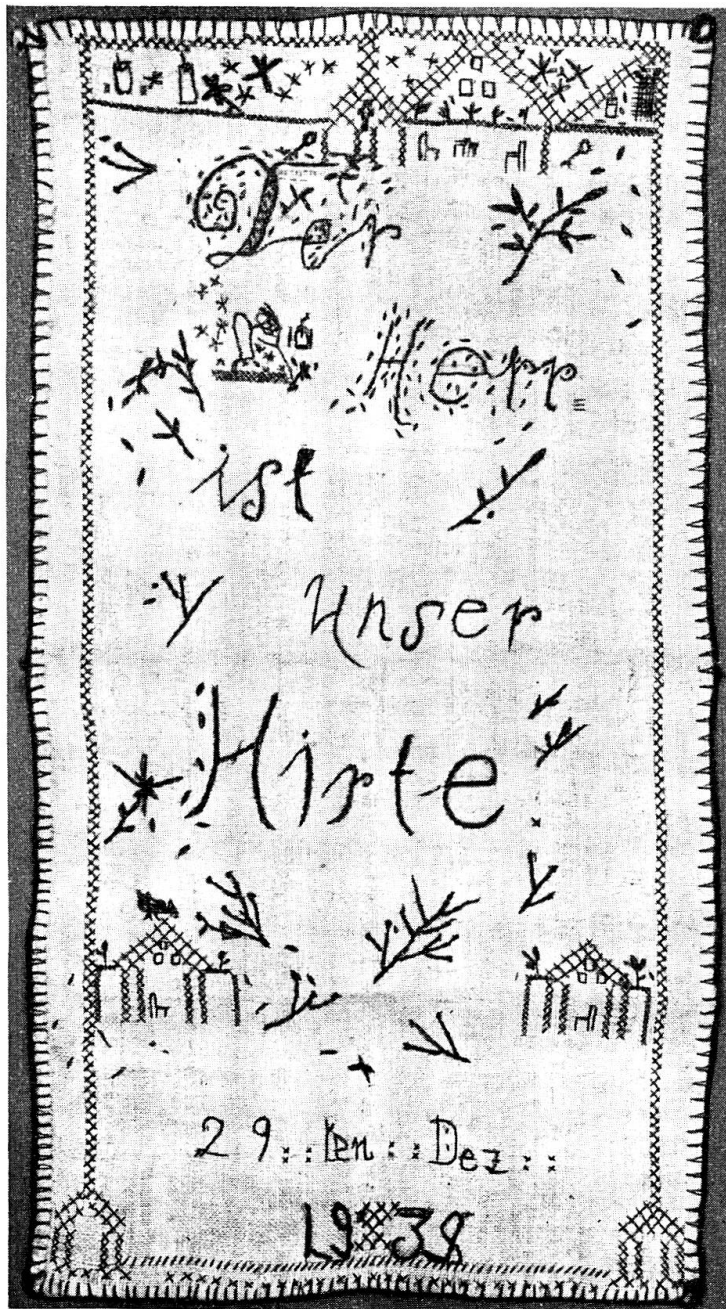 Der
Herr
ist
unser
Hirte
29 ten Dez
1938